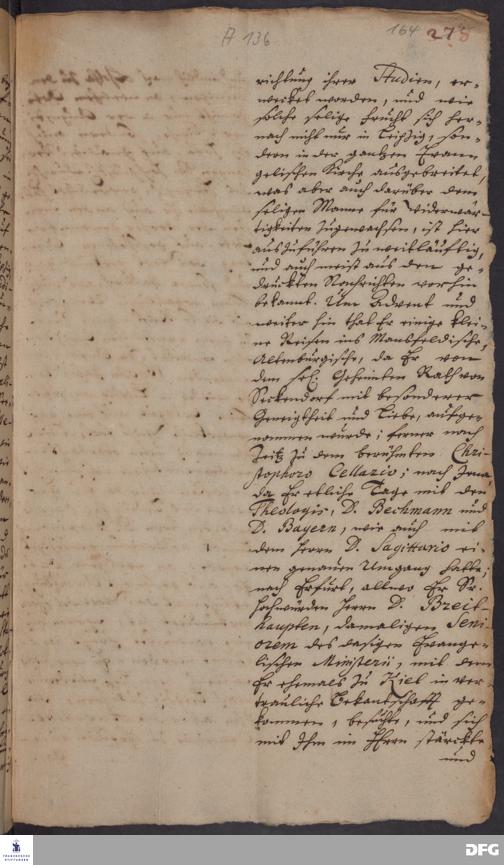 A 136
164
278
richtung ihrer Studien, er-
wecket worden, und wie
solche selige Frucht sich her-
nach nicht nur in Leipzig, son-
dern in der gantzen Evan-
gelischen Kirche ausgebreitet,
was aber auch darüber dem
seligen Manne für Widerwär-
tigkeiten zugewachsen, ist hier
auszuführen zu weitläuftig,
und auch meist aus den ge-
druckten Nachrichten vorhin
bekannt. Um Advent und
weiter hin that Er einige klei-
ne Reisen ins Mansfeldische,
Altenburgische, da Er von
dem sel. Geheimten Rath von
Seckendorf mit besonderer
Geneigtheit und Liebe, aufge-
nommen wurde; ferner nach
Zeitz zu dem berühmten Chri-
stophoro Cellario; nach Jena
da Er etliche Tage mit den
Theologis, D. Bechmann und
D. Bayern, wie auch mit
dem Herrn D. Sagittario ei-
nen genauen Umgang hatte;
nach Erfurt, allwo Er Sr.
Hochwürden Herrn D. Breit-
haupten, damaligen Seni-
orem des dasigen Evange-
lischen Ministerii, mit dem
Er ehemals zu Kiel in ver-
trauliche Bekantschafft ge-
kommen, besuchte, und sich
mit Ihm im HErrn stärckte
und
FRANCKESCHE
STIFTUNGEN
DFG